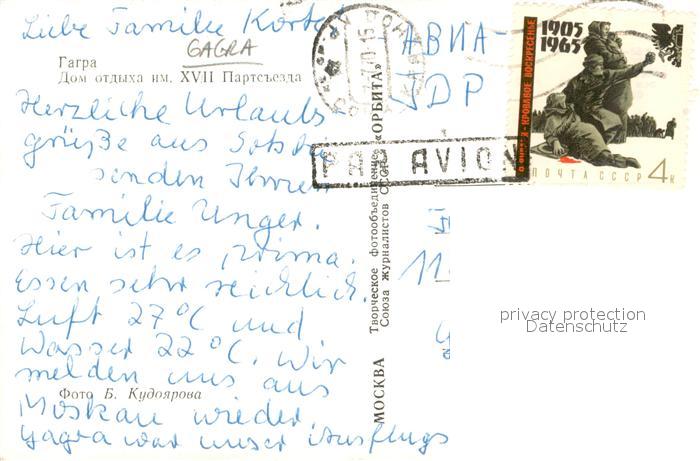 Liebe Familie
GAGRA
Гагра
Дом отдыха им. XVII Партсъезда
Herzliche Urlaubs-
grüße aus
senden Ihnen
Familie Unger.
Hier ist es prima.
Essen sehr reichlich.
Luft 27°C und
Wasser 22°C. Wir
melden uns aus
Фото Б. Кудоярова
Moskau wieder.
Gagra war unser Ausflugs
МОСКВА
Творческое фотообъединение «ОРБИТА»
Союза журналистов СССР
АВИА-
PAR AVION
1905
1965
КРОВАВОЕ ВОСКРЕСЕНЬЕ
ПОЧТА СССР 4к
11
privacy protection
Datenschutz